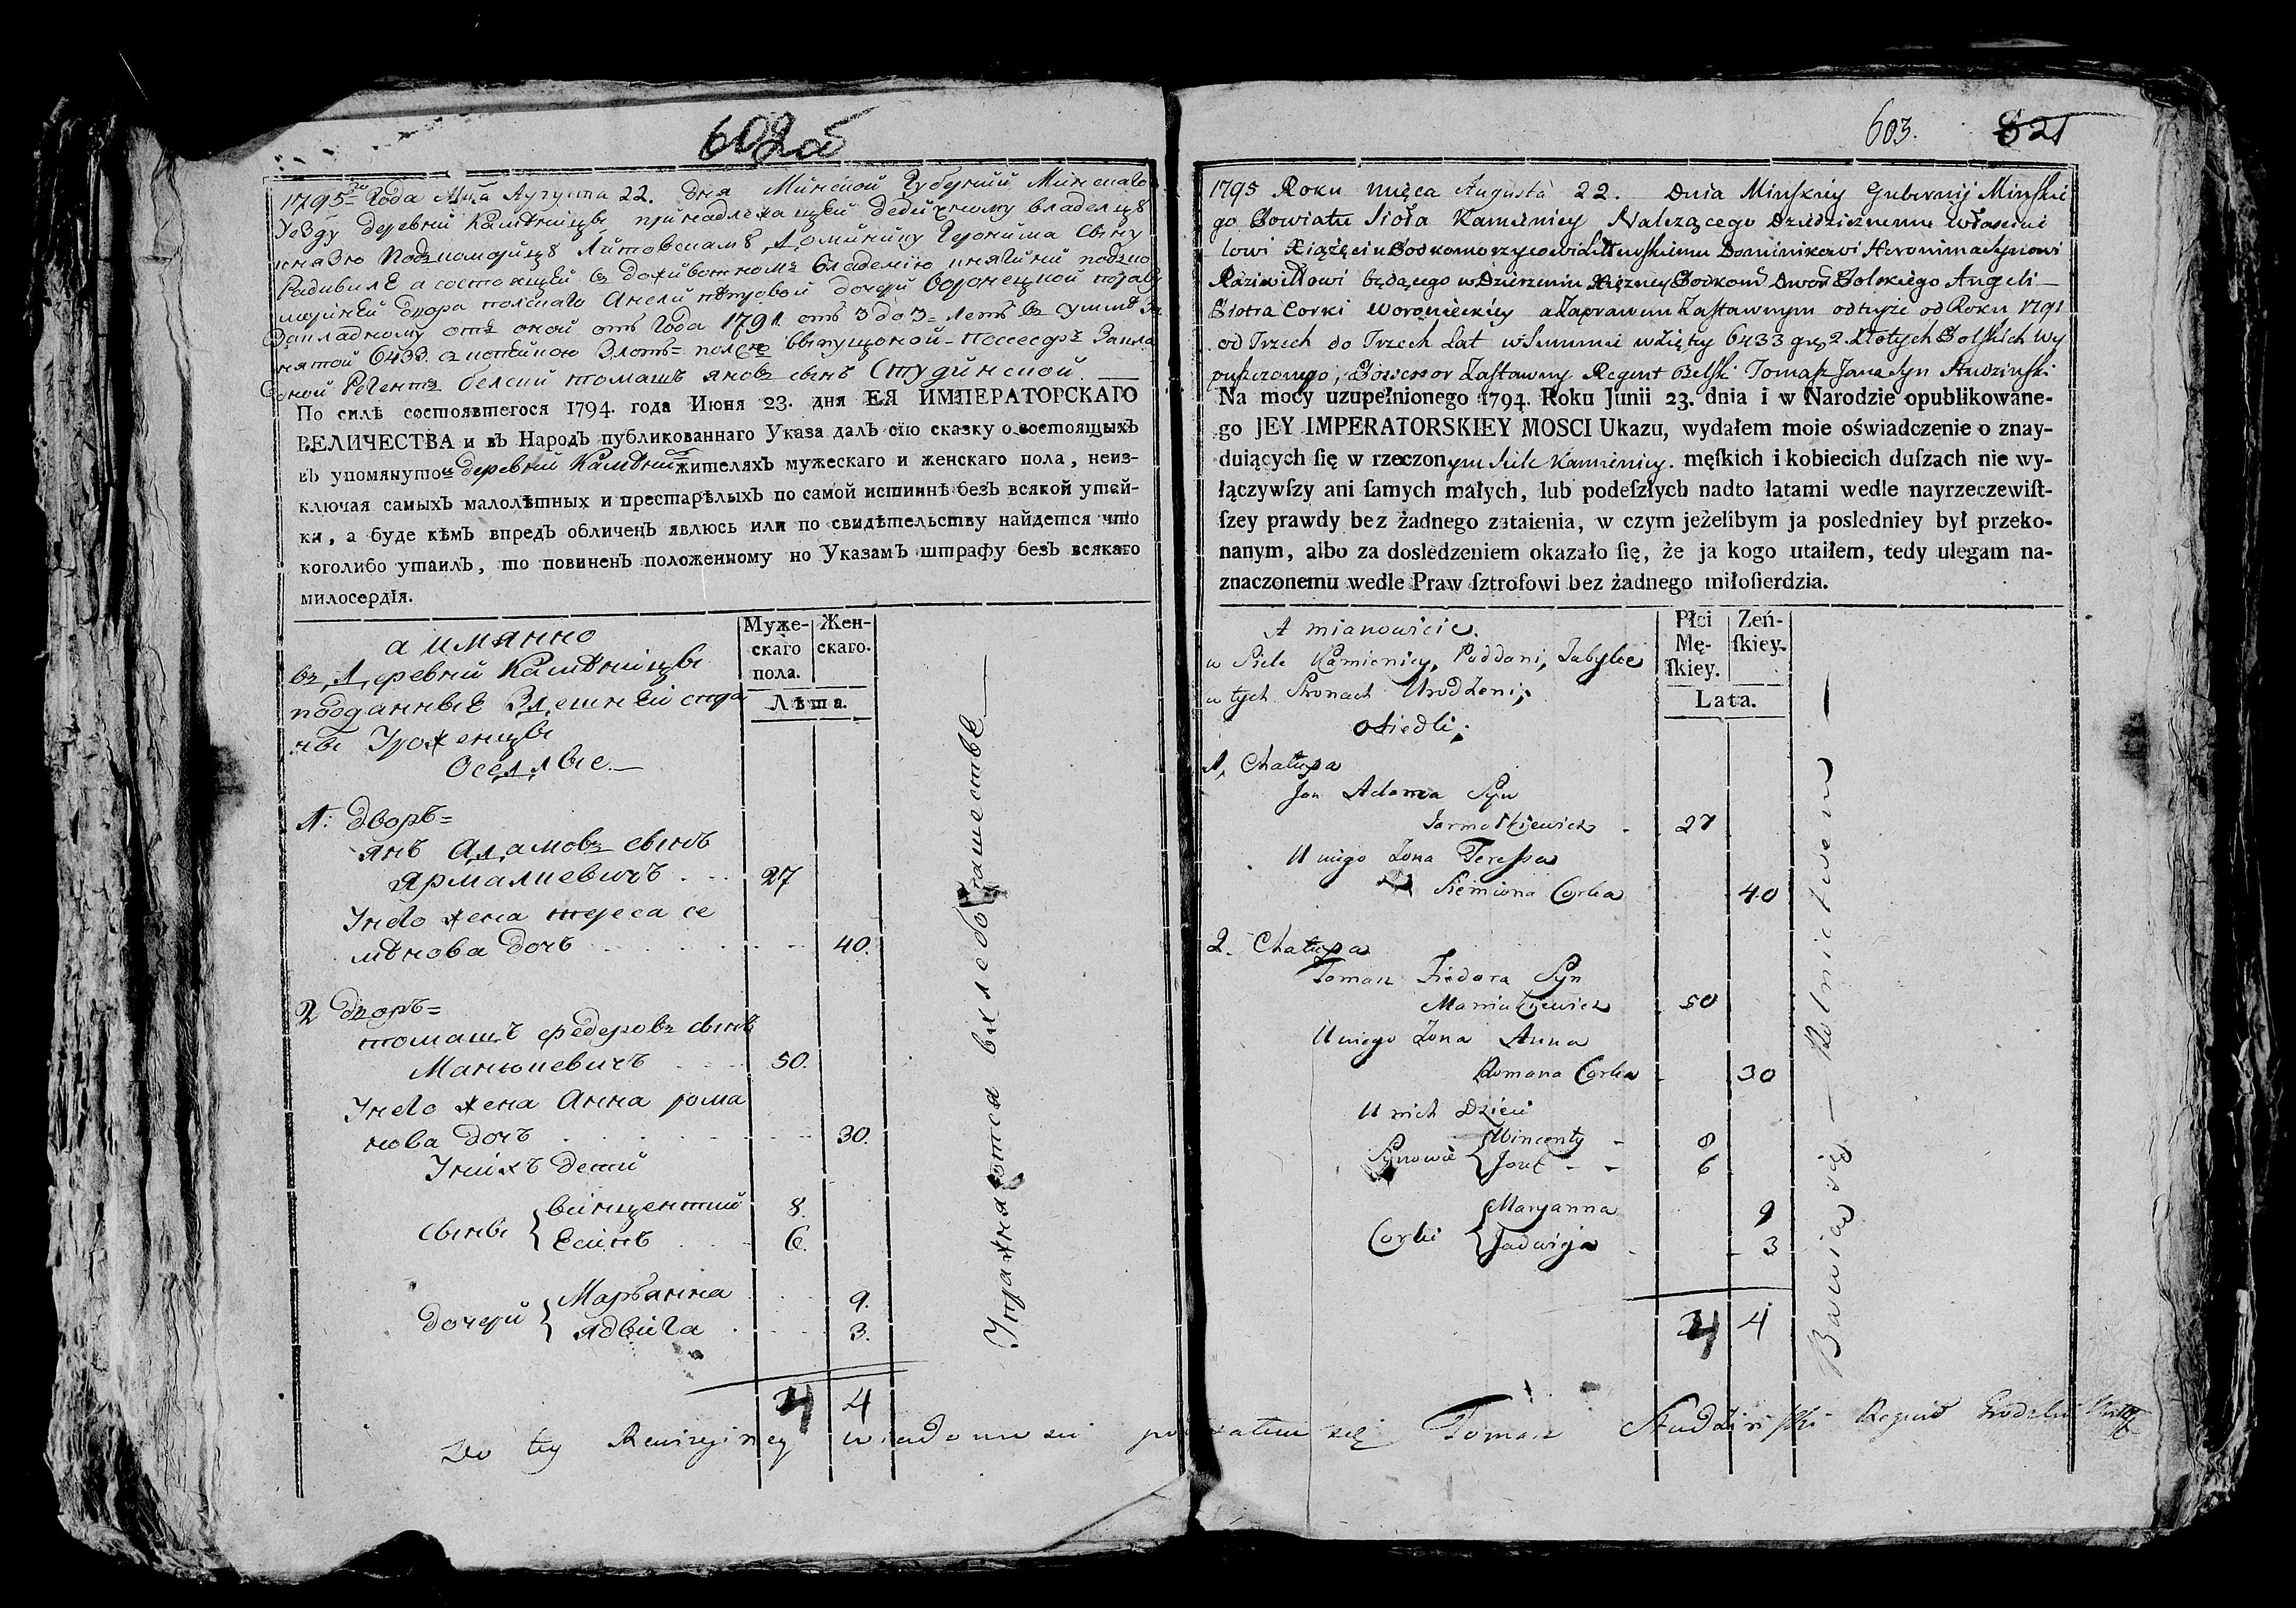 602об
1795го Года Мца Августа 22. дня Минской Губерний Минскаго
Уезду деревни Камѣницы принадлежащей дедичному владельцу
князю Подкоморицу Литовскамъ Доминику Геронима сыну
Радивилѣ а состоящей въ доживотномъ владению княгини подко
мориней двора полскаго Анели петровой дочери воронецкой по праву
Закладному отъ оной отъ Года 1791. отъ 3 до 3= летъ въ сумме за
нятой 6433. злотъ= полских выпущоной Поссесоръ Закла
дной Регентъ белский томашъ яновъ сынъ Студзинской
По силѣ состоявшегося 1794. года Июня 23. дня ЕЯ ИМПЕРАТОРСКАГО
ВЕЛИЧЕСТВА и въ Народъ публикованнаго Указа далъ сїю сказку о состоящыхъ
въ упомянутой деревни Камѣницы жителяхъ мужескаго и женскаго пола, неиз-
ключая самыхъ малолѣтных и престарѣлыхъ по самой истиннѣ безъ всякой утай-
ки, а буде кѣмъ впредь обличенъ явлюсь или по свидѣтельству найдется что
коголибо утаилъ, то повиненъ положенному по Указамъ штрафу безъ всякаго
милосердїя.
а имянно
въ Деревни Камѣницы
подданные Здешней сторо
ны Уроженцы
Оседлые.
Муже-
скаго
пола.
Жен-
скаго.
Лѣта.
1: дворъ=
янъ Адамовъ сынъ
Ярмалкевичъ 27
У него жена тереса се
мѣнова дочь 40.
2 дворъ=
томашъ федеровъ сынъ
Манюкевичъ 50.
У него жена Анна рома
нова дочь 30.
У нихъ дети
сыны { винцентий 8.
Есипъ 6.
дочери { Марьянна 9.
Ядвига 3.
4 4
Упражняются въ хлебопашестве
603. 821
1795 Roku mięca Augusta 22. Dnia Minſkiey Gubernij Minſkie
go Powiatu Sioła Kamienicy Należącego Dziedzicznemu Właścicie
lowi Xiążęciu Podkomorzycowi Littewſkiemu Dominikowi Heronima Synowi
Raziwiłłowi będącego w Dzierzeniu Xiężney Podkom Dwor Polskiego Angeli
Piotra Corki Woronieckiey a Zaprawem Zaſtawnym od teyże od Roku 1791
od Trzech do Trzech Lat w Summie wziętey 6433 grꝫ 2. Złotych Polſkich wy
puſzczonego, Possessor Zaſtawny Regent Belſki Tomaſz Jana Syn Studzinſki
Na mocy uzupełnionego 1794. Roku Junii 23. dnia i w Narodzie opublikowane-
go JEY IMPERATORSKIEY MOSCI Ukazu, wydałem moie oświadczenie o znay-
duiących ſię w rzeczonym Siele Kamienicy. męſkich i kobiecich duſzach nie wy-
łączywſzy ani ſamych małych, lub podeſzłych nadto latami wedle nayrzeczewiſt-
ſzey prawdy bez żadnego zataienia, w czym jeżelibym ja poslednieу był przeko-
nanym, albo za dosledzeniem okazało ſię, że ja kogo utaiłem, tedy ulegam na-
znaczonemu wedle Praw ſztrofowi bez żadnego miłoſierdzia.
A mianowicie.
w Siele Kamienicy, Poddani, Tubylce
w tych Stronach Urodzeni,
Osiedli;
Płci
Mę-
ſkiey.
Zeń-
ſkiey.
Lata.
1, Chałupa
Jan Adama Syn
Jarmołkiewicz 27
U niego Zona Tereſsa
Siemiona Corka 40
2. Chałupa
Tomasz Fiedora Syn
Maniukiewicz 50
U niego Zona Anna
Romana Corka 30
U nich Dzieci
Synowie { Wincenty 8
Jozef 6
Corki { Maryanna 9
Jadwiga 3
4 4
Bawiąsię — Rolnictwem —
Do tey Rewizyiney wiadomosci podpisałem się Tomasz Studzinſki Regent Grodzki